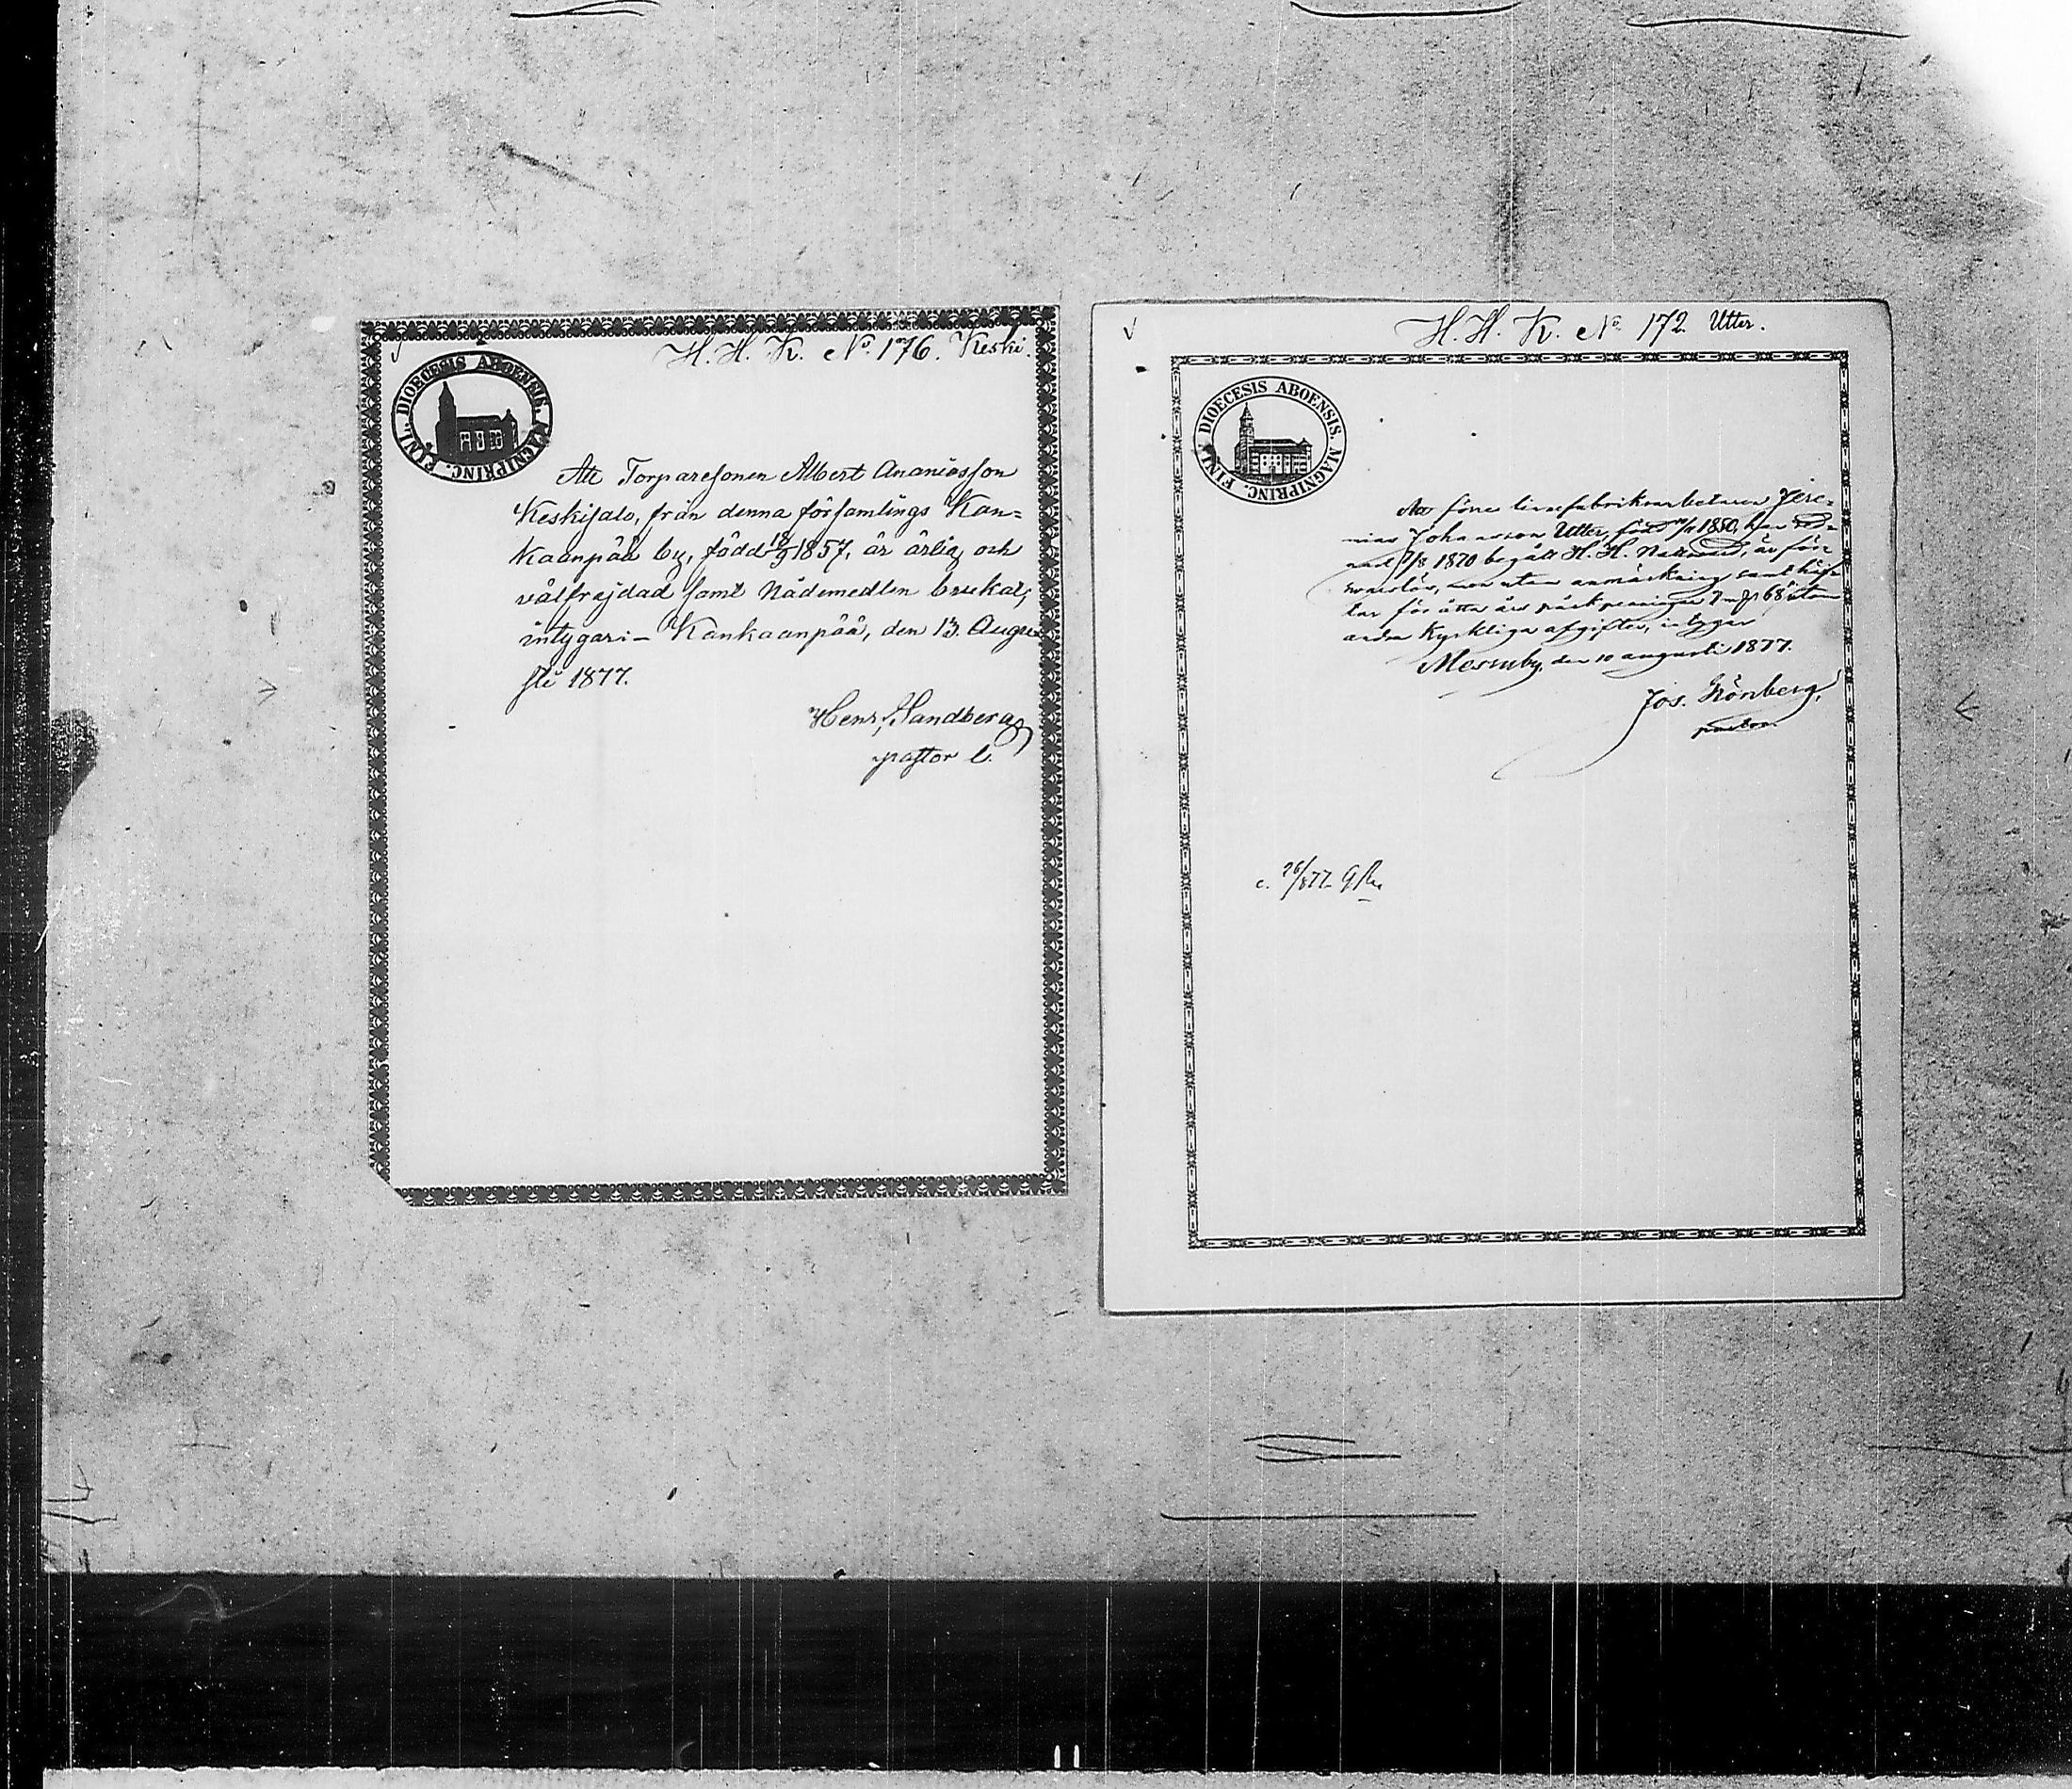 H. H. K. No. 176. Keski.
DIOECESIS ABOENSIS. MAGNIPRINC. FINL.
Att Torparesonen Albert Ananiasson
Keskisalo, från denna församlings Kan=
kaanpää by, född 18/9 1857, är ärlig och
välfrejdad samt Nådemedlen brukat,
intygar:– Kankaanpää, den 13. Augu=
sti 1877.
Henr. Sandberg
pastor l.
H. H. K. No 172 Utter.
DIOECESIS ABOENSIS. MAGNIPRINC. FINL.
Att förre fabriksarbetaren Jere-
mias Johansson Utter, född 1850, har
1870 begått H. H. Nattvard, är för-
utan anmärkning samt häf-
tar för åtta års 68 utom
andra kyrkliga afgifter, intygar
den 10 augusti 1877.
Jos. Grönberg,
pastor.
c. 26/877